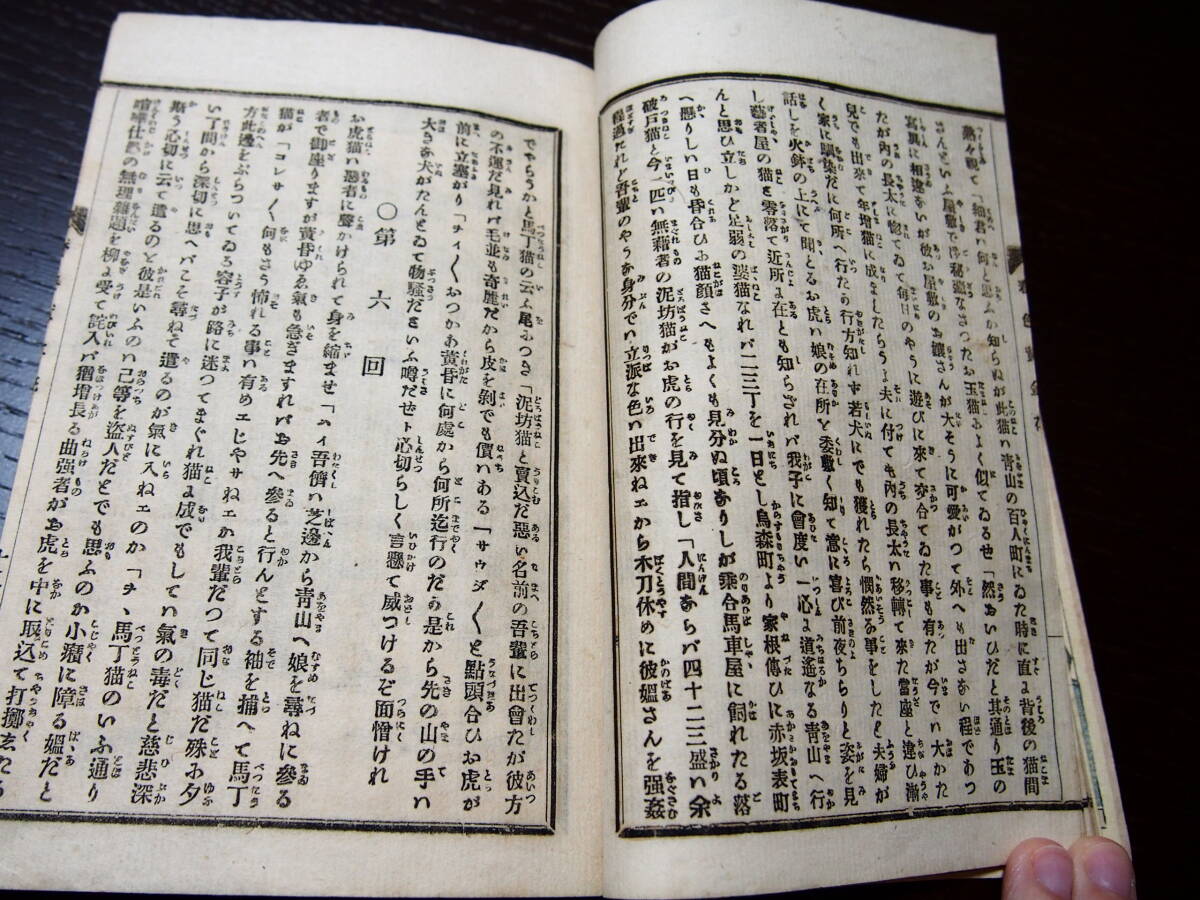 熟々視て「細君ハ何と思ふか知らねが此猫ハ青山の百人町にゐた時に直き背後の猫間
さんといふ屋敷で御秘蔵なさつたお玉猫によく似てゐるぜ「然ゐいひだと其通り玉の
寫眞に相違ないが彼お屋敷のお孃さんが大そうに可愛がつて外へも出さない程であつ
たが内の長太に惚てゐて毎日のやうに遊びに來て交合てゐた事も有たが今でハ大かた
兒でも出來て年増猫に成ましたらうよ夫に付ても内の長太ハ移轉て來た當座と違ひ漸
く家に馴染だに何所へ行たか行方知れず若犬にでも獲れたら憫然な事をしたと夫婦が
話しを火鉢の上にて聞とるお虎ハ娘の在所を委敷く知て當に喜び前夜ちらりと姿を見
し藝者屋の猫も零落て近所に在とも知らざれバ我子に會度い一心に道遙なる青山へ行
んと思ひ立しかど足弱の婆猫なれバ二三丁を一日とし烏森町より家根傳ひに赤坂表町
へ懸りしい日も昏合ひお猫顔さへもよくも見分ぬ頃ありしが乘合馬車屋に飼れたる落
破戸猫と今一匹ハ無藉者の泥坊猫がお虎の行を見て指し「人間あらバ四十二三盛ハ余
程過たれど吾輩のやうな身分でハ立派な色ハ出來ねエから木刀休めに彼媼さんを强姦
でやらうかと馬丁猫の云ふ尾につき「泥坊猫と賣込だ惡い名前の吾輩に出會たが彼方
の不運だ見れバ毛並も奇麗だから皮を剝でも價ハある「サウダ〳〵と點頭合ひお虎が
前に立塞がり「チイ〳〵おつかあ黄昏に何處から何所迄行のだ是から先の山の手ハ
大きな犬がたんとゐて物騷だといふ噂だぜト心切らしく言懸て威つけるぞ面憎けれ
〇第六回
お虎猫ハ惡者に聲かけられて身を縮ませ「ハイ吾儕ハ芝邊から青山へ娘を尋ねに參る
者で御座りますが黄昏ゆゑ氣も急ぎますれバお先へ參ると行んとする袖を捕へて馬丁
猫が「コレサ〳〵何もさう怖れる事ハ有めエじやサねエか我輩だつて同じ猫だ殊にタ
方此邊をぶらついてゐる容子が路に迷つてまぐれ猫に成でもしてハ氣の毒だと慈悲深
い了簡から深切に思へバこそ尋ねて遣るのが氣に入ねエのか「チヽ馬丁猫のいふ通り
斯う心切に云て遣るのを彼是いふのハ己等を盜人だとでも思ふのか小癪に障る媼だと
喧嘩仕懸の無理難題を柳に受て詫入バ猶增長る曲强者がお虎を中に取込て打擲ゑたら